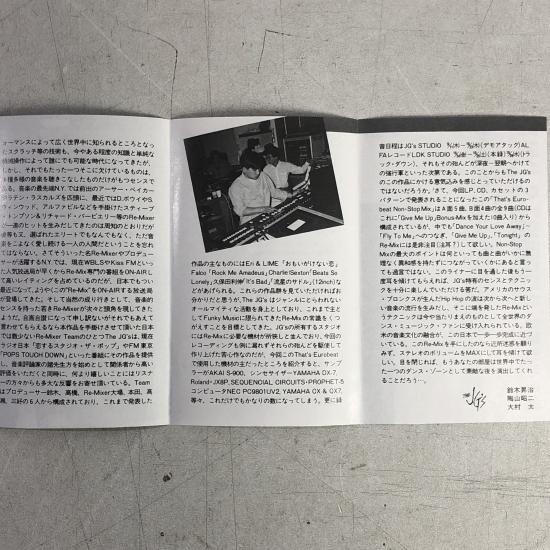 ォーマンスによって広く世界中に知られるところとなっ
たスクラッチ等の技術も、今やある程度の知識と単純な
操作によって誰にでも可能な時代になってきたが、
しかし、それでもたった一つそこに欠けているものは、
種多様の音楽を聴きこなしたものだけがもつセンスで
ある。音楽の最先端N.Y.では前出のアーサー・ベイカー
ラテン・ラスカルズを匹頭に、最近ではD.ボウイやS.
ウィンウッド、アルカトビルなどを手掛けたスティーブ・
トンプソン&リチャード・バービエリー等のRe-Mixer
が一連のヒットを生みだしてきたのは周知のとおりだが
彼等も又、選ばれたエリートでもなんでもなく、ただ音
楽をこよなく愛し続ける一人の人間だということを忘れ
てはならない。さてそういった名Re-Mixerやプロデュー
サーが活躍するN.Y.では、現在WBLSやKiss FMといっ
た人気放送局が早くからRe-Mix専門の番組をON-AIRし
て高いレイティングを占めているのだが、日本でもつい
最近になって、ようやくこの"Re-Mix"をON-AIRする放送局
が登場してきた。そして当然の成り行きとして、音楽的
センスを持った若きRe-Mixerが次々と頭角を現してきた
ようだ。自画自賛になって申し訳ないがそれでもあえて
言わせてもらえるなら本作品を手掛けさせて頂いた日本
では数少ないRe-Mixer TeamのひとつThe JG'sは、現在
ラジオ日本「恋するスタジオ・ザ・ポップ」やFM東京
「POPS TOUCH DOWN」といった番組にその作品を提供
し、音楽評論家の諸先生方を始めとして関係者から高い
評価をいただくと同時に、何より嬉しいことにはリスナ
ーの方々からも多大な反響をお寄せ頂いている。Team
はプロデューサー鈴木、高橋、Re-Mixer大場、本田、高
三好の6人から構成されており、これまで発表した
作品の主なものにはEri & LIME「おもいがけない恋」
Falco「Rock Me Amadeus」Charlie Sexton「Beats So
Lonely」久保田利伸「It's Bad」「流星のサドル」(12inch)な
どがあげられる。これらの作品群を見ていただければお
分かりだと思うが、The JG'sはジャンルにとらわれない
オールマイティな活動を身上としており、これまで主と
してFunky Musicに限られてきたRe-Mixの常識をくつ
がえすことを目標としてきた。JG'sの所有するスタジオ
にはRe-Mixに必要な機材が所狭しと並んでおり、今回の
レコーディングも例に漏れずそれらの殆んどを駆使して
作り上げた苦心作なのだが、今回このThat's Eurobeat
で使用した機材の主だったところを紹介すると、サンプ
ラーがAKAI S-900、シンセサイザーYAMAHA DX-7、
Roland・JX8P、SEQUENCIAL CIRCUITS・PROPHET-5
コンピュータNEC PC9801UV2、YAMAHA QX & QX7、
等々、これだけでもかなりの数になってしまう。更に録
音日程はJG's STUDIO (デモアタック)AL
FAレコードLDK STUDIO (本録) (ト
ラック・ダウン)、それもその殆んどが深夜ー翌朝へかけて
の強行軍といった次第である。このことからもThe JG's
のこの作品にかける意気込みを感じとっていただけるの
ではないだろうか。さて、今回LP、CD、カセットの3
パターンで発売されることになったこの「That's Euro-
beat Non-Stop Mix」はA面5曲、B面4曲の全9曲(CDは
これに「Give Me Up」Bonus-Mixを加えた10曲入り)から
構成されているが、中でも「Dance Your Love Away」〜
「Fly To Me」へのつなぎ、「Give Me Up」、「Tonight」の
Re-Mixには是非注目(注耳?)して欲しい。Non-Stop
Mixの最大のポイントは何といっても曲と曲がいかに無
理なく異和感を持たずにつながっていくかにあると言っ
ても過言ではない。このライナーに目を通した後もう一
度耳を傾けてもらえれば、JG's特有のセンスとテクニッ
クを十分に楽しんでいただける筈だ。アメリカのサウス
・ブロンクスが生んだHip Hopの波は次から次へと新し
い音楽の流行を生みだし、そこに端を発したRe-Mixとい
うテクニックは今や当たりまえのものとして全世界のダ
ンス・ミュージック・ファンに受け入れられている。欧
米の音楽文化の融合が、この日本で一歩一歩完成に近づ
いている。このRe-Mixを手にしたのなら近所迷惑を顧り
みず、ステレオのボリュームをMAXにして耳を傾けて欲
しい。目を閉じれば、もうあなたの部屋は世界中でたっ
た一つのダンス・ゾーンとして素敵な夜を演出してくれ
ることだろう…。
THE JG's
鈴木昇治
陶山昭二
大村 太